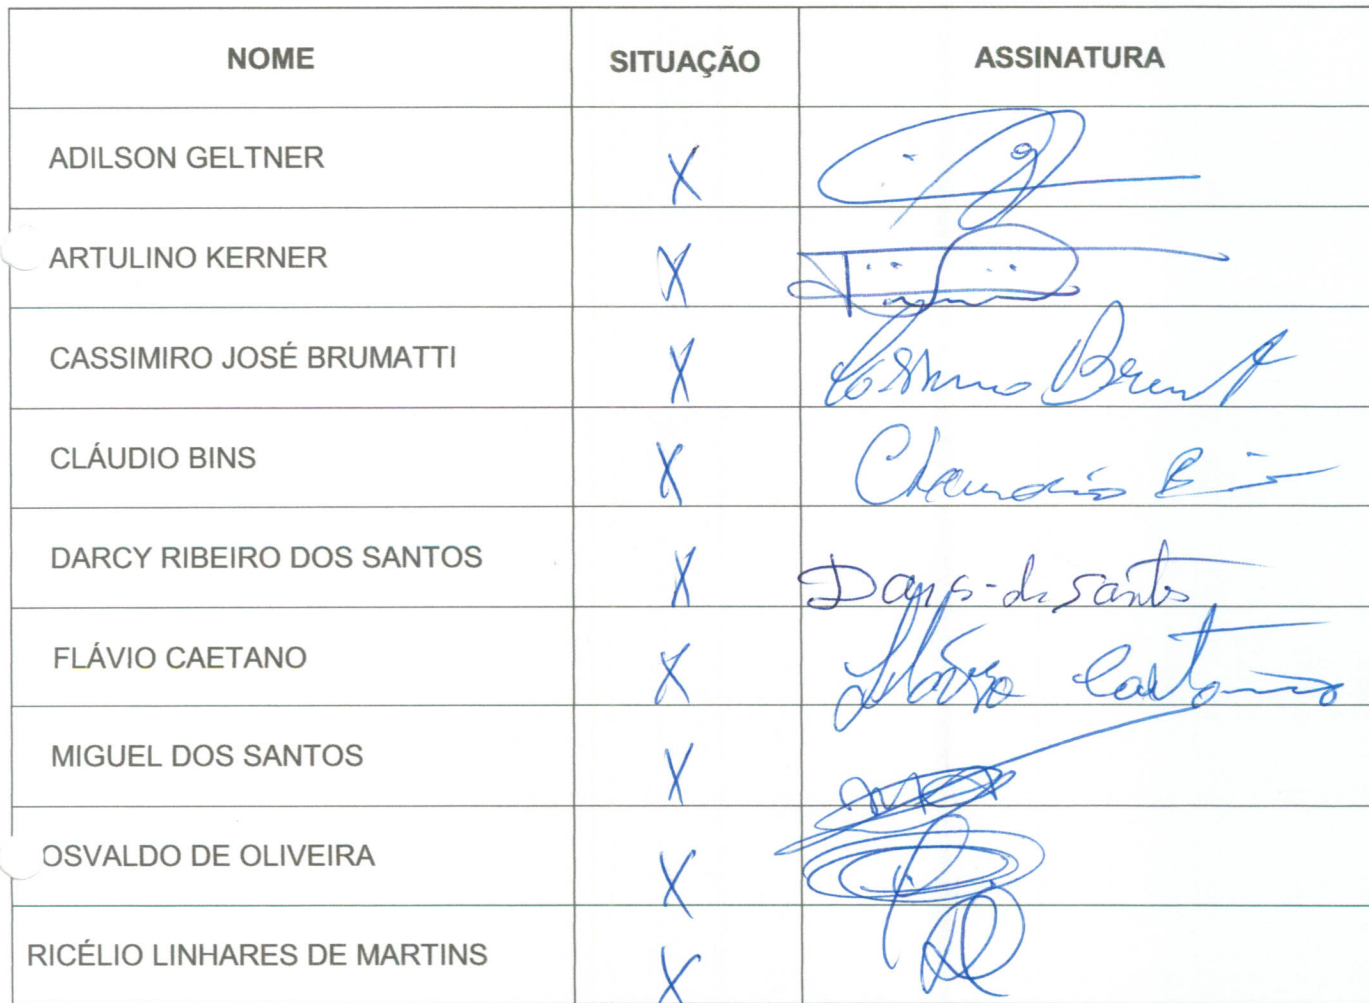 NOME SITUAÇÃO ASSINATURA
ADILSON GELTNER X
ARTULINO KERNER X
CASSIMIRO JOSÉ BRUMATTI X
CLÁUDIO BINS X Claudio Bins
DARCY RIBEIRO DOS SANTOS X
FLÁVIO CAETANO X Flávio Caetano
MIGUEL DOS SANTOS X
OSVALDO DE OLIVEIRA X
RICÉLIO LINHARES DE MARTINS X